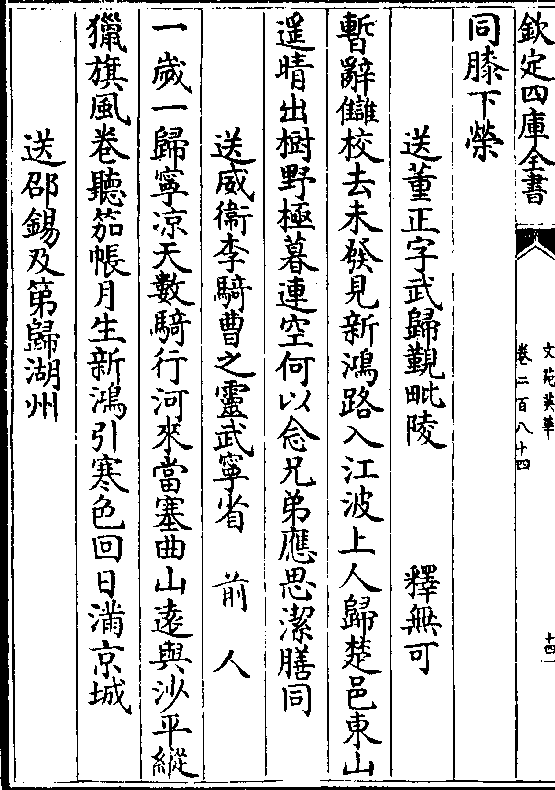 欽定四庫全書
文苑英華
卷二百八十四
十四
同膝下榮
送董正字武歸覲毗陵 釋無可
暫辭讎校去未發見新鴻路入江波上人歸楚邑東山
遥晴出樹野極暮連空何以念兄弟應思潔膳同
送威衞李騎曹之靈武寧省 前人
一歲一歸寧凉天數騎行河來當塞曲山遠與沙平縱
獵旗風卷聽笳帳月生新鴻引寒色回日滿京城
送邵錫及第歸湖州